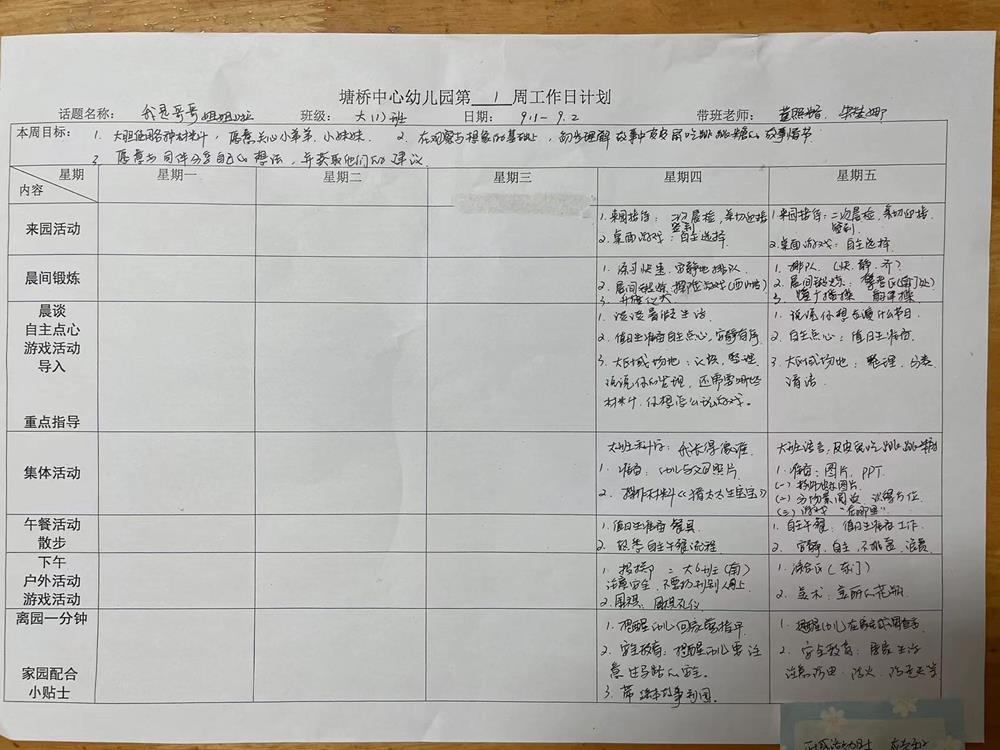 塘桥中心幼儿园第 1 周工作日计划
话题名称: 我是哥哥姐姐啦 班级: 大(1)班 日期: 9.1-9.2 带班老师:
本周目标: 1. 大胆运用各种材料, 愿意关心小弟弟、小妹妹. 2. 在观察与想象的基础上, 初步理解故事中皮皮鼠吃跳跳糖的故事情节
3. 愿意与同伴分享自己的想法, 并获取他们的建议
星期 星期一 星期二 星期三 星期四 星期五
内容
来园活动
1. 来园接待: 二次晨检, 亲切迎接
签到
2. 桌面游戏: 自主选择
1. 来园接待: 二次晨检, 亲切迎接.
签到
2. 桌面游戏: 自主选择.
晨间锻炼
1. 练习快速、安静地排队
2. 晨间锻炼:
3. 升旗仪式
1. 排队 (快、静、齐)
2. 晨间锻炼:
3.
晨谈
自主点心
游戏活动
导入
重点指导
1. 谈谈暑假生活
2. 值日生准备自主点心, 安静有序
3. 大区域场地: 整理
说说你的发现, 还需要哪些
材料, 你想怎么玩游戏。
1. 说说你想表演什么节目.
2. 自主点心: 值日生准备.
3. 大区域场地: 整理、分类、
清洁.
集体活动
大班科学: 我长得像谁
1. 准备: 幼儿与父母照片
2. 操作材料《猪太太生宝宝》
大班语言: 皮皮鼠吃跳跳糖
1. 准备: 图片, PPT.
(一)
(二) 分场景阅读
(三) 游戏 "在哪里".
午餐活动
散步
1. 值日生准备 餐具
2. 熟悉自主午餐流程
1. 自主午餐: 值日生准备工作.
2. 安静, 自主, 不挑食、浪费
下午
户外活动
游戏活动
1. 大6班 (南)
注意安全, 不要
2. 围棋: 围棋礼仪
1. (东门)
2. 美术: 美丽的花瓶
离园一分钟
家园配合
小贴士
1. 提醒幼儿回家
2. 安全教育: 提醒幼儿要注
意过马路的安全.
3. 带 故事到园。
1. 提醒幼儿在家
2. 安全教育: 居家生活
注意防电、防火、